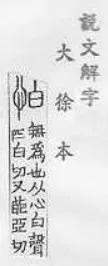 說文解字
大徐本
怕
無爲也从心白聲
匹白切又葩亞切